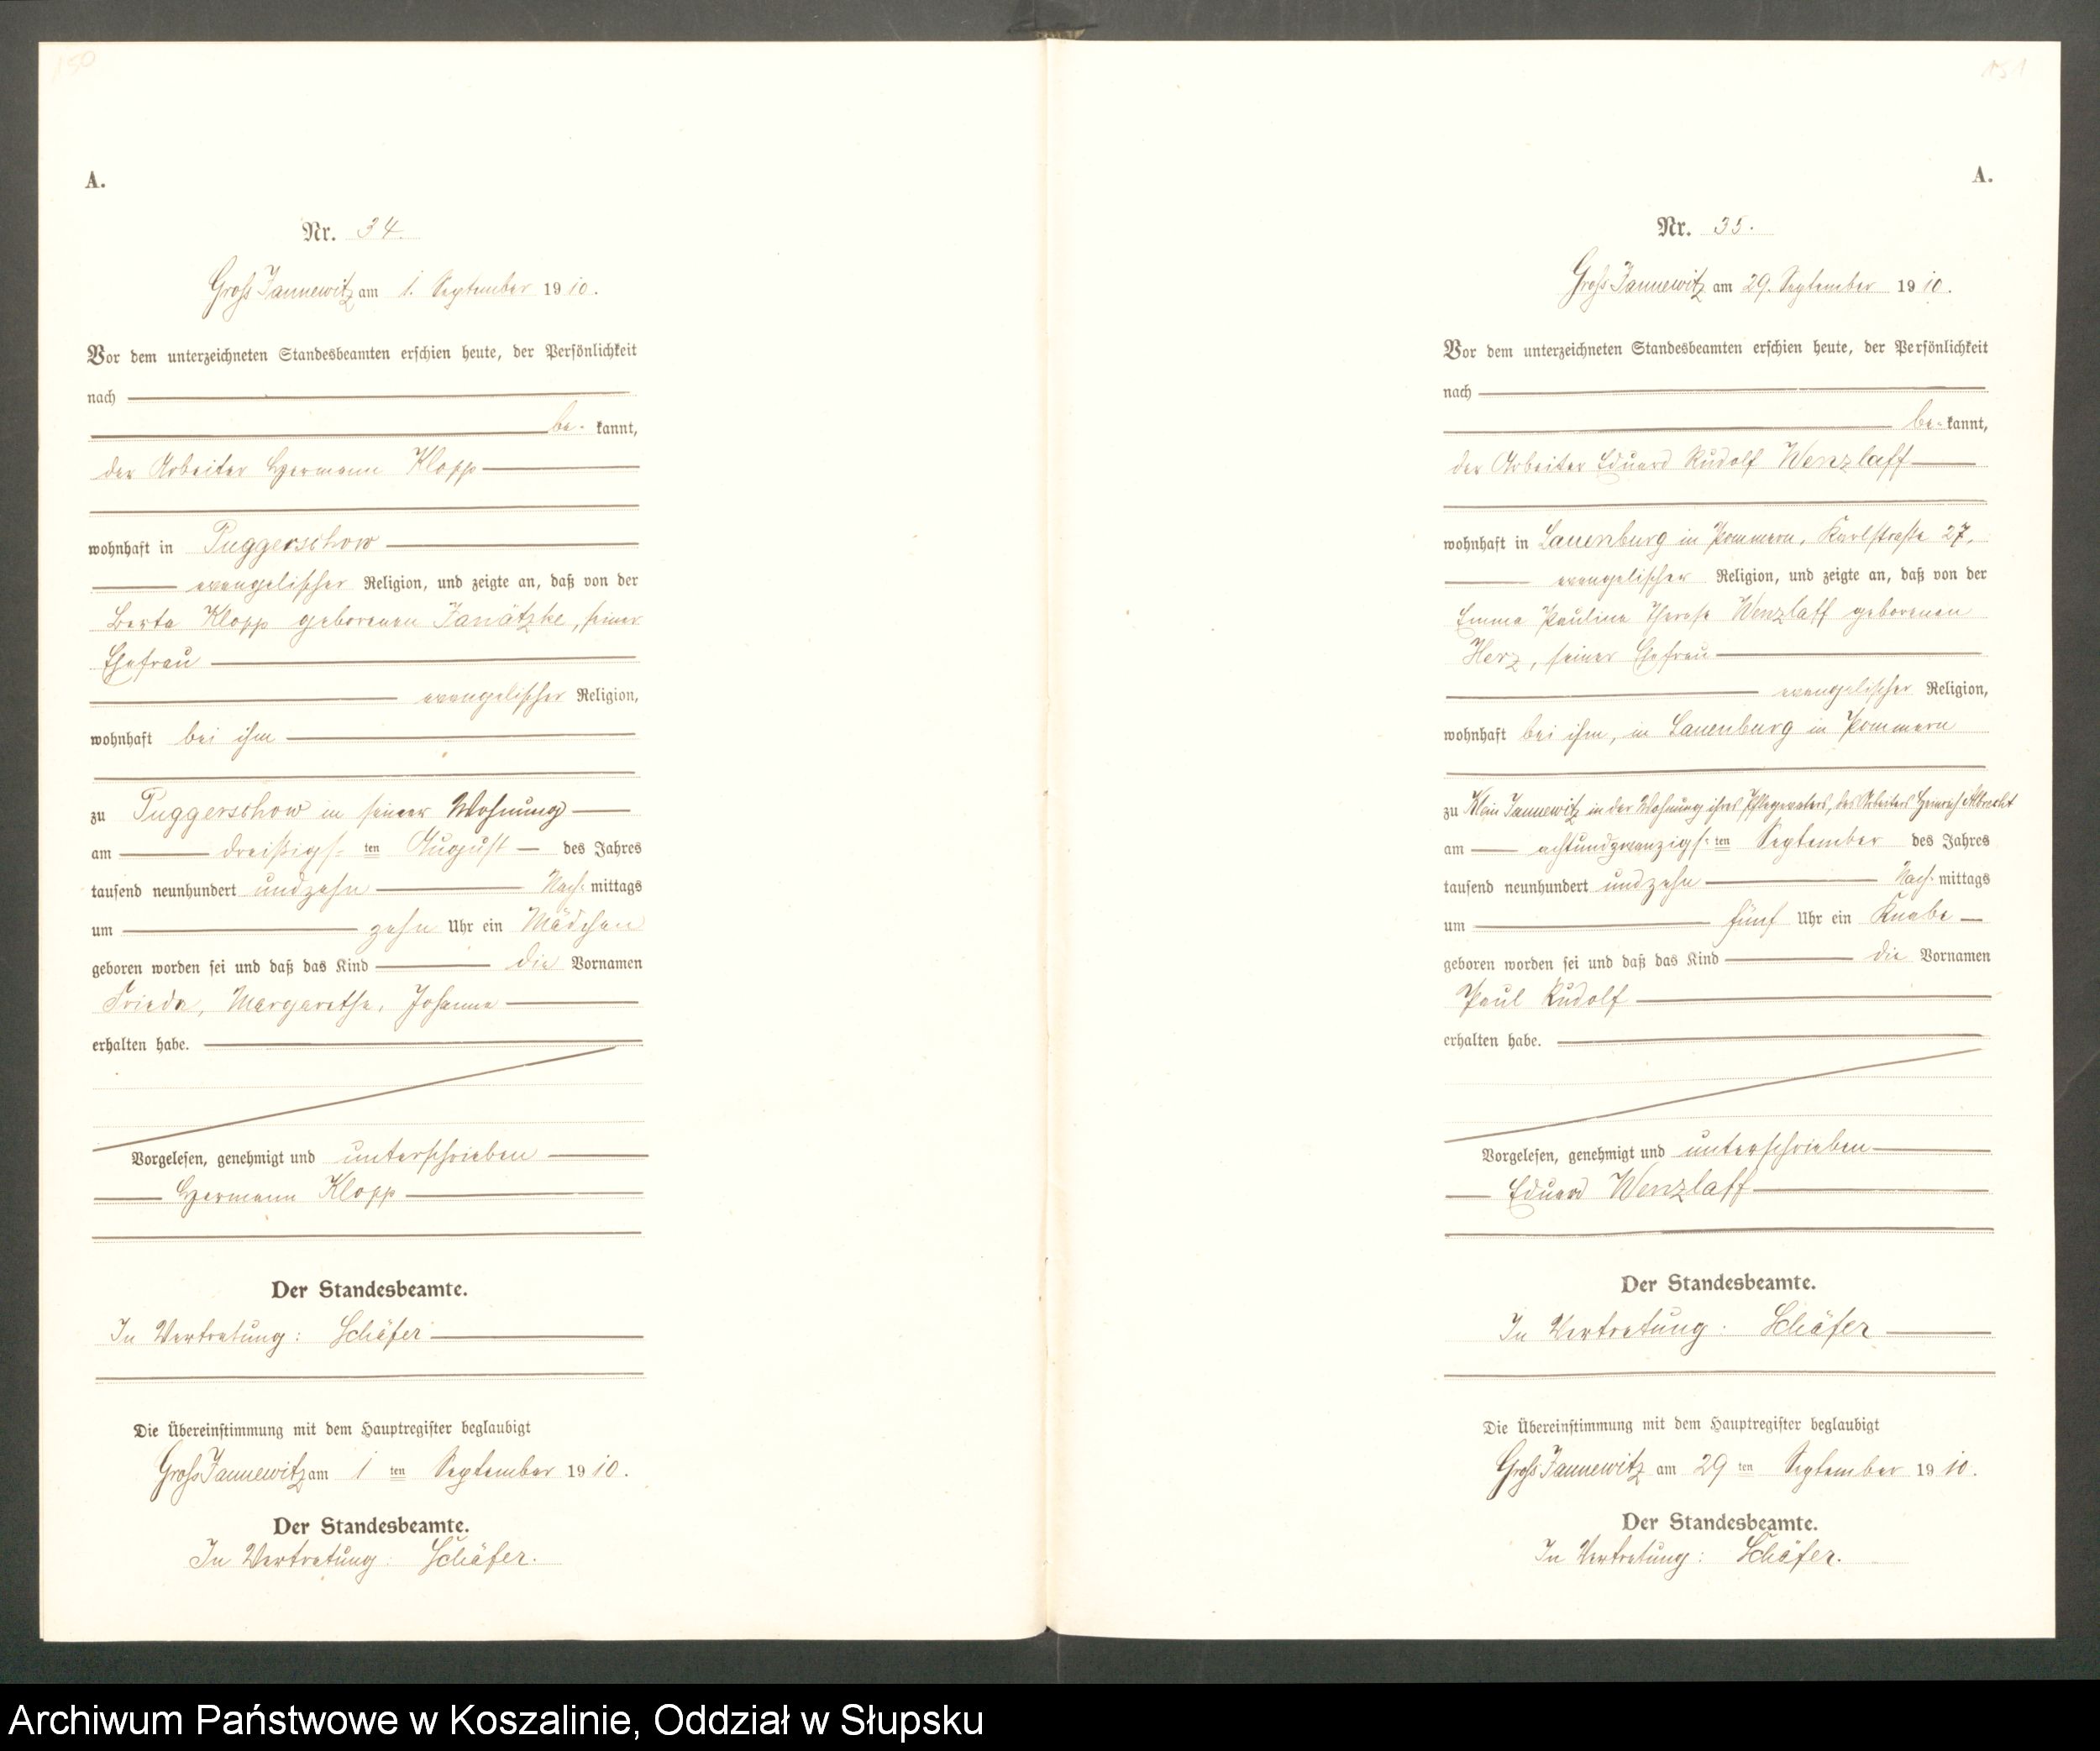 150
A.
Nr. 34.
Gross Jannewitz am 1. September 1910.
Vor dem unterzeichneten Standesbeamten erschien heute, der Persönlichkeit
nach
be- kannt,
der Arbeiter Hermann Klopp
wohnhaft in Puggerschow
evangelischer Religion, und zeigte an, daß von der
Berta Klopp geborenen Janätzke, seiner
Ehefrau
evangelischer Religion,
wohnhaft bei ihm
zu Puggerschow in seiner Wohnung
am dreißigs- ten August des Jahres
tausend neunhundert undzehn Nach- mittags
um zehn Uhr ein Mädchen
geboren worden sei und daß das Kind die Vornamen
Frieda, Margarethe, Johanna
erhalten habe.
Vorgelesen, genehmigt und unterschrieben
Hermann Klopp
Der Standesbeamte.
In Vertretung: Schäfer
Die Übereinstimmung mit dem Hauptregister beglaubigt
Gross Jannewitz am 1 ten September 1910.
Der Standesbeamte.
In Vertretung: Schäfer.
151
A.
Nr. 35.
Gross Jannewitz am 29. September 1910.
Vor dem unterzeichneten Standesbeamten erschien heute, der Persönlichkeit
nach
be- kannt,
der Arbeiter Eduard Rudolf Wenzlaff
wohnhaft in Lauenburg in Pommern, Karlstraße 27,
evangelischer Religion, und zeigte an, daß von der
Emma Pauline Therese Wenzlaff geborenen
Herz, seiner Ehefrau
evangelischer Religion,
wohnhaft bei ihm, in Lauenburg in Pommern
zu Klein Jannewitz in der Wohnung ihres Pflegevaters, des Arbeiters Heinrich Albrecht
am achtundzwanzigs- ten September des Jahres
tausend neunhundert undzehn Nach- mittags
um fünf Uhr ein Knabe
geboren worden sei und daß das Kind die Vornamen
Paul Rudolf
erhalten habe.
Vorgelesen, genehmigt und unterschrieben
Eduard Wenzlaff
Der Standesbeamte.
In Vertretung: Schäfer
Die Übereinstimmung mit dem Hauptregister beglaubigt
Gross Jannewitz am 29 ten September 1910.
Der Standesbeamte.
In Vertretung: Schäfer.
Archiwum Państwowe w Koszalinie, Oddział w Słupsku